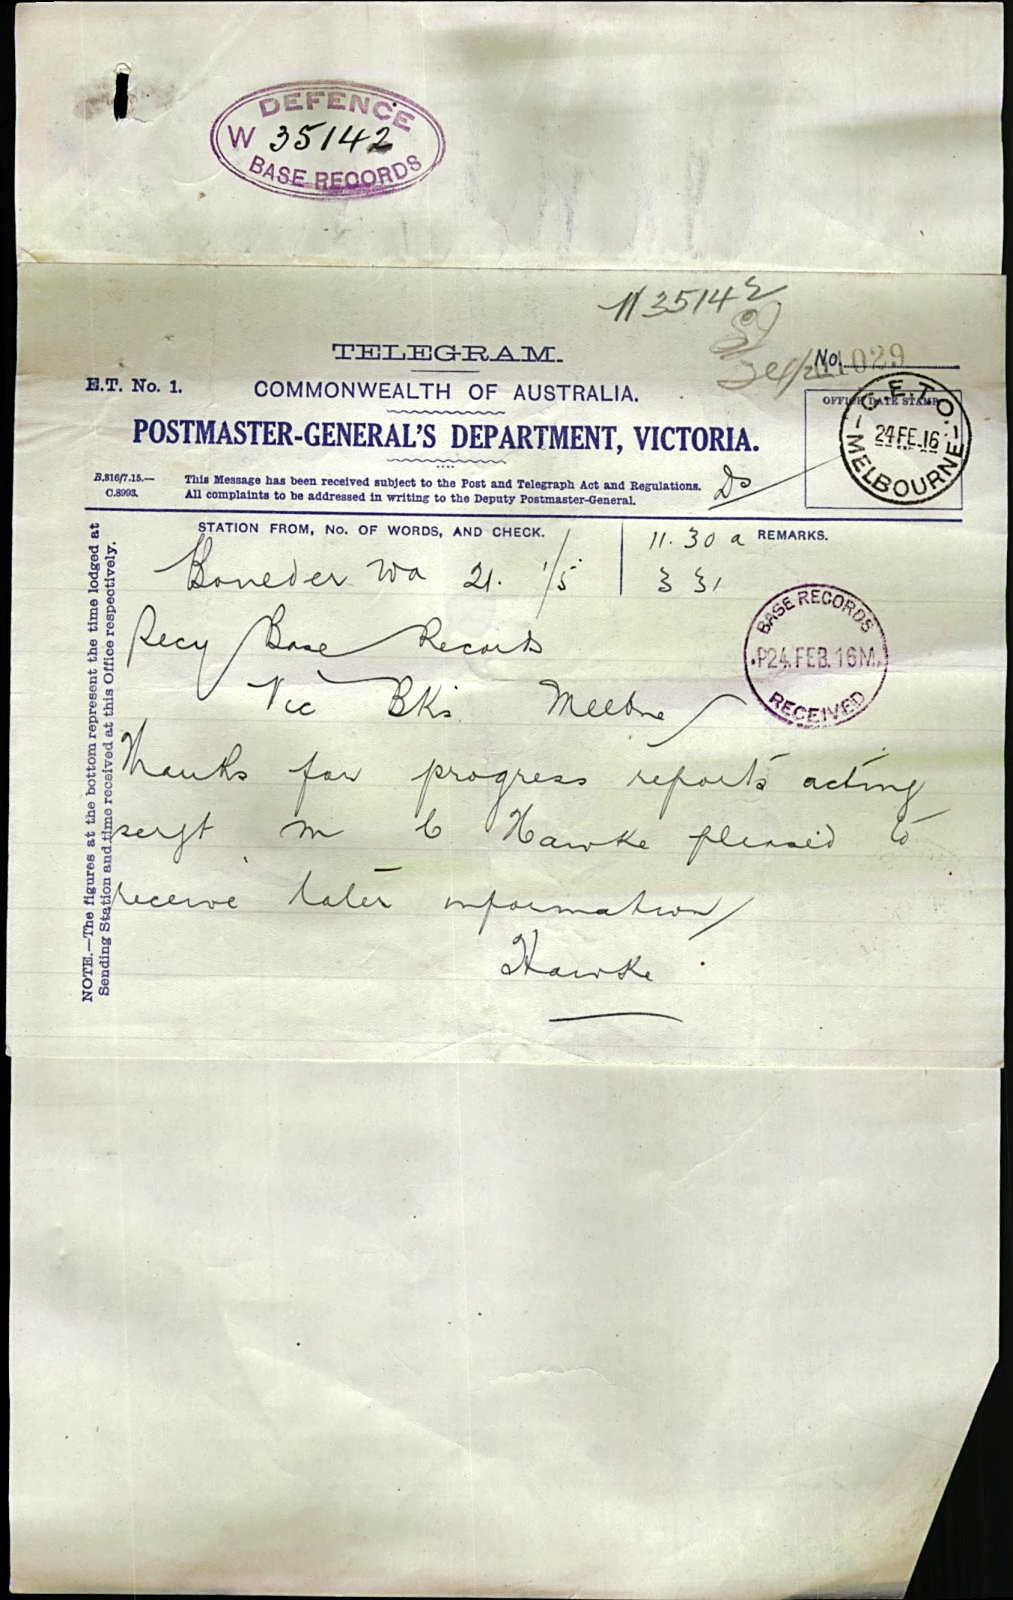 DEFENCE
W 35142
BASE RECORDS
W 35142
TELEGRAM.
No. 1029
E.T. No. 1.
COMMONWEALTH OF AUSTRALIA.
OFFICE DATE STAMP
C.E.T.O.
24 FE. 16
MELBOURNE
POSTMASTER-GENERAL'S DEPARTMENT, VICTORIA.
B.816/7.15.—
C.8993.
This Message has been received subject to the Post and Telegraph Act and Regulations.
All complaints to be addressed in writing to the Deputy Postmaster-General.
Ds
STATION FROM, NO. OF WORDS, AND CHECK.
11.30 a REMARKS.
Boulder Wa 21. 1/5
3 31
Secy Base Records
Vic Bks Melbne
BASE RECORDS
P24.FEB.16M.
RECEIVED
Thanks for progress reports acting
sergt M C Hawke pleased to
receive later information
Hawke
NOTE.—The figures at the bottom represent the time lodged at
Sending Station and time received at this Office respectively.